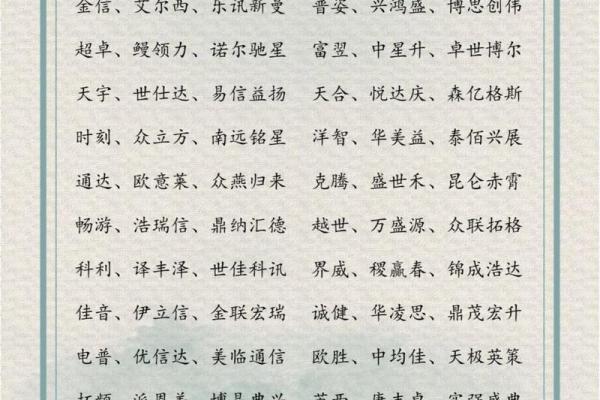 金信、艾尔西、乐讯新曼 普姿、兴鸿盛、博思创伟
超卓、鳗领力、诺尔驰星 富翌、中星升、卓世博尔
天宇、世仕达、易信益扬 天合、悦达庆、森亿格斯
时刻、众立方、南远铭星 洋智、华美益、泰佰兴展
通达、欧意莱、众燕归来 克腾、盛世禾、昆仑赤霄
畅游、浩瑞信、鼎纳汇德 越世、万盛源、众联拓格
科利、译丰泽、世佳科讯 界威、稷赢春、锦成浩达
佳音、伊立信、金联宏瑞 诚健、华凌思、鼎茂宏升
电普、优信达、美临通信 欧胜、中均佳、天极英策